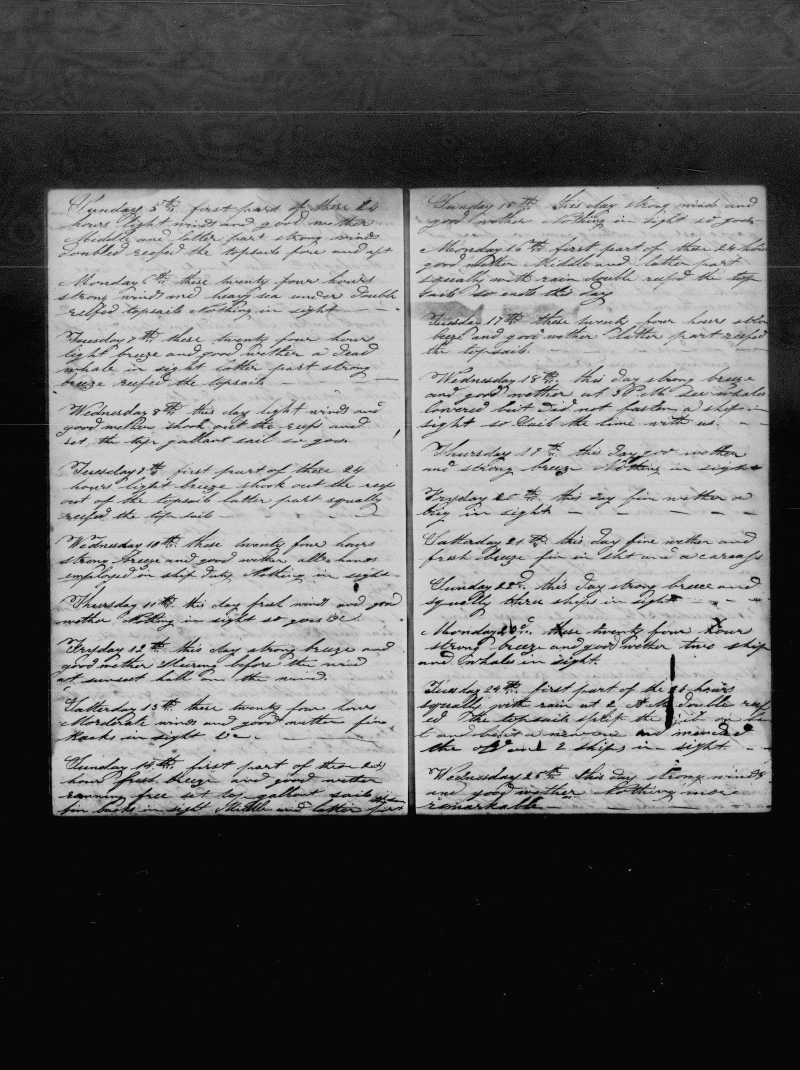 Sunday 5th first part of these 24
hours light winds and good wether
Middle and latter part strong winds
doubled reefed the topsails fore and aft
Monday 6th these twenty four hours
strong winds and heavy sea under double
reefed topsails Nothing in sight
Tuesday 7th these twenty four hours
light breeze and good wether a dead
whale in sight latter part strong
breeze reefed the topsails
Wednesday 8th this day light winds and
good wether shook out the reefs and
set the top gallant sail so goes
Tuesday 9th first part of these 24
hours light breeze shook out the reefs
out of the topsails latter part squally
reefed the top sail
Wednesday 10th these twenty four hours
strong breeze and good wether all hands
employed in ship duty Nothing in sight
Thursday 11th this day fresh winds and good
wether Nothing in sight so goes &c
Fryday 12th this day strong breeze and
good wether Stearing before the wind
at sunset in the wind.
Satterday 13th these twenty four hours
Moderate winds and good wether fin
Back in sight &c
Sunday 14th first part of these 24
hours fresh breeze and good wether
running free set top gallant sails
fin backs in sight Middle and latter part
Sunday 15th this day strong winds and
good wether Nothing in sight so goes
Monday 16th first part of these 24 hours
good wether Middle and latter part
squally with rain double reefd the top
sails so ends this day
Tuesday 17th these twenty four hours strong
breeze and good wether latter part reefed
the topsails
Wednesday 18th this day strong breeze
and good wether at 3 PM see whales
lowered but did not fasten a ship in
sight so Sails the time with us.
Thursday 19th this day good wether
and strong breeze Nothing in sight
Fryday 20th this day fin wether a
brig in sight
Satterday 21th this day fine wether and
fresh breeze fin in sht and a carcass
Sunday 22d this day strong breeze and
squally three ships in sight
Monday 23d these twenty four hour
strong breeze and good wether two ship
and Whale in sight.
Tuesday 24th first part of the 24 hours
squally with rain at 2 A.M. double reef
ed The topsails split the jib
t and bent a new one and mended
the old and 2 ships in sight
Wednesday 25th this day strong winds
and good wether Nothing more
remarkable